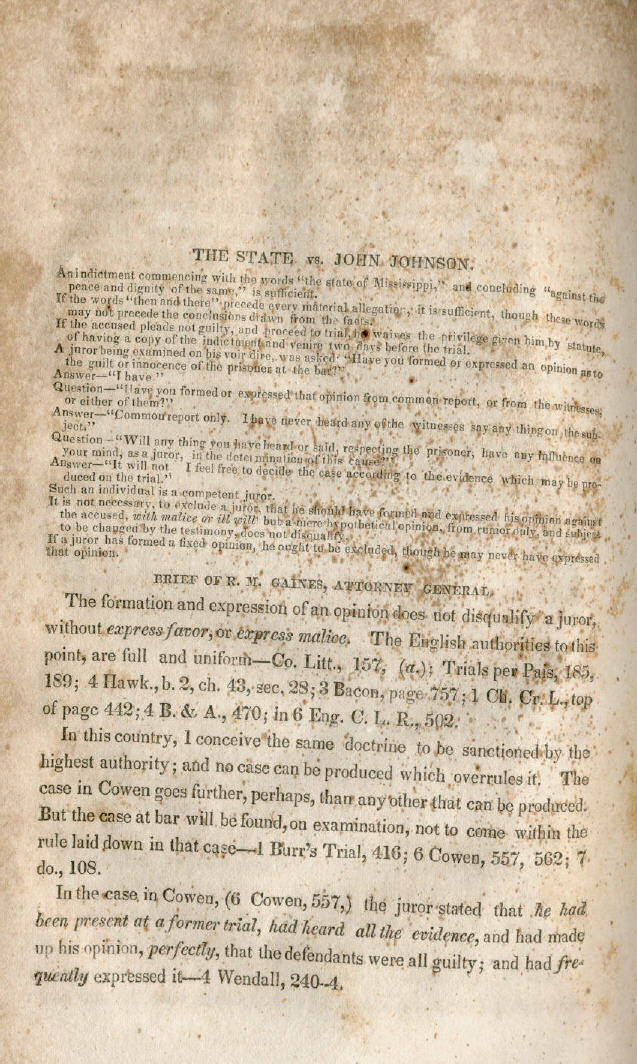 THE STATE vs. JOHN JOHNSON.
An indictment commencing with the words "the state of Mississippi," and concluding "against the
peace and dignity of the same," is sufficient.
If the words "then and there" precede every material allegation, it is sufficient, though these words
may not precede the conclusions drawn from the facts.
If the accused pleads not guilty, and proceed to trial, he waives the privilege given him, by statute,
of having a copy of the indictment and venire two days before the trial.
A juror being examined on his voir dire, was asked "Have you formed or expressed an opinion as to
the guilt or innocence of the prisoner at the bar?"
Answer—"I have"
Question—"Have you formed or expressed that opinion from common report, or from the witnesses,
or either of them?"
Answer—"Common report only. I have never heard any of the witnesses say any thing on the sub-
ject."
Question—"Will any thing you have heard or said, respecting the prisoner, have any influence on
your mind, as a juror, in the determination of this cause?"
Answer—"It will not I feel free to decide the case according to the evidence which may be pro-
duced on the trial."
Such an individual is a competent juror.
It is not necessary, to exclude a juror, that he should have formed and expressed his opinion against
the accused, with malice or ill will but a mere hypothetical opinion, from rumor only, and subject
to be changed by the testimony, does not disqualify.
If a juror has formed a fixed opinion, he ought to be excluded, though he may never have expressed
that opinion.
BRIEF OF R. M. GAINES, ATTORNEY GENERAL.
The formation and expression of an opinion does not disqualify a juror,
without express favor, or express malice. The English authorities to this
point, are full and uniform—Co. Litt., 157, (a.); Trials per Pais, 185,
189; 4 Hawk., b. 2, ch. 43, sec. 28; 3 Bacon, page 757; 1 Ch. Cr. L., top
of page 442; 4 B. & A., 470; in 6 Eng. C. L. R., 502.
In this country, I conceive the same doctrine to be sanctioned by the
highest authority; and no case can be produced which overrules it. The
case in Cowen goes further, perhaps, than any other that can be produced.
But the case at bar will be found, on examination, not to come within the
rule laid down in that case—1 Burr's Trial, 416; 6 Cowen, 557, 562; 7
do., 108.
In the case in Cowen, (6 Cowen, 557,) the juror stated that he had
been present at a former trial, had heard all the evidence, and had made
up his opinion, perfectly, that the defendants were all guilty; and had fre-
quently expressed it—4 Wendall, 240-4.